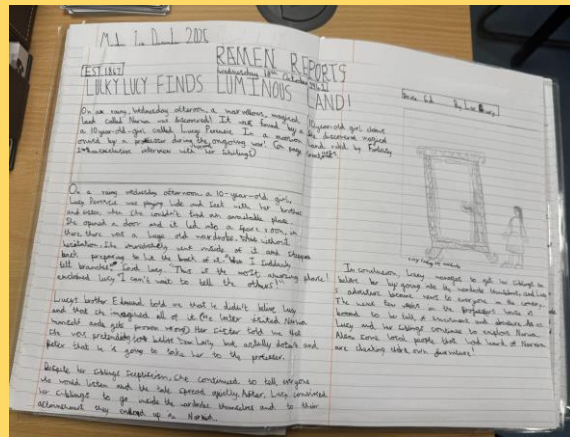 RAMEN REPORTS
EST. 1867
Wednesday 18th October 1867
LUCKY LUCY FINDS LUMINOUS LAND!
On a rainy, Wednesday afternoon, a marvellous, magical
land called Narnia was discovered! It was found by a
a 10-year-old-girl called Lucy Pevensie. In a mansion
owned by a professor during the ongoing war! (on page
exclusive interview with her siblings)
10 year-old girl claims
On a rainy wednesday afternoon a 10-year-old girl,
Lucy Pevensie was playing hide and seek with her brothers
and sister, when she couldn't find an available place.
She opened a door and it led into a spare room, in
there there was a huge old wardrobe. without
hesitation, she immediately went inside of it and stepped
back preparing to the back of it. "But I suddenly
felt branches" said Lucy. "This is the most amazing place!"
exclaimed Lucy "I can't wait to tell the others!"
Lucy's brother Edmund told me that he didn't believe Lucy
and that she imagined all of it. (He later visited Narnia
himself and gets proven wrong) Her sister told me that
she was pretending to believe Lucy but actually doesn't and
Peter that he is going to take her to the professor.
Despite her siblings scepticism, she continued to tell everyone
who would listen and the tale spread quickly. After, Lucy convinced
her siblings to go inside the wardrobe themselves and to their
astonishment they ended up in Narnia.
In conclusion, Lucy manages to get her siblings to
believe her by going into the wardrobe themselves, and Lucy
's adventure became news to everyone in the
The were the doors in the professor's house is
bound to be full of excitement and adventure. As
Lucy and her siblings continue to explore Narnia.
Also some local people that had heard of Narnia
are checking their own furniture!